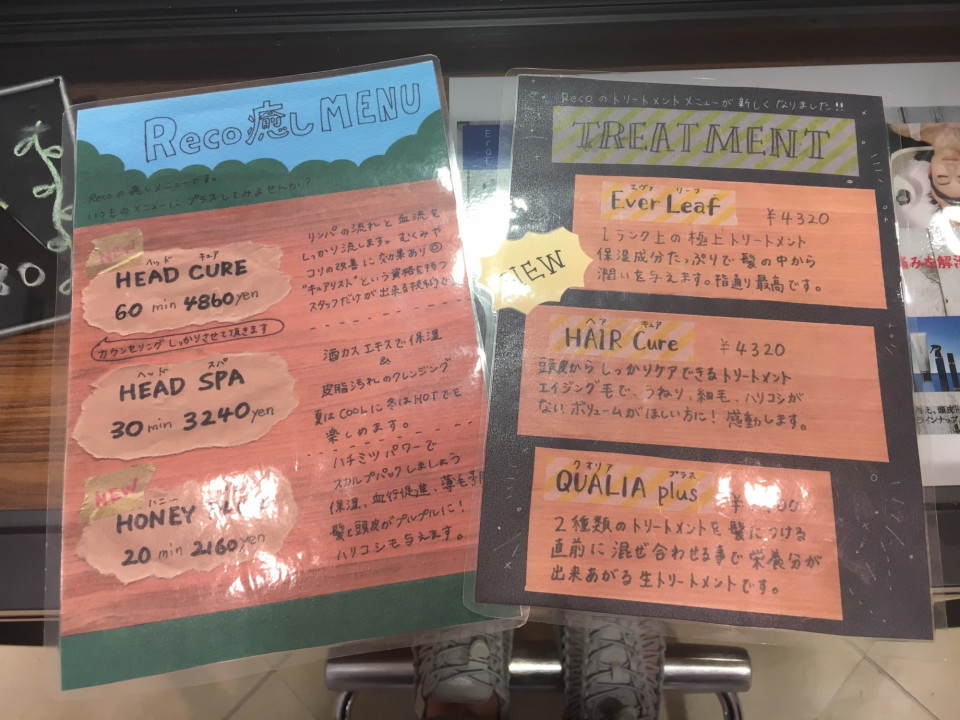 Reco癒しMENU
Recoの癒しメニューです。
いつものメニューにプラスしてみませんか？
NEW
ヘッド キュア
HEAD CURE
60 min 4860yen
カウンセリングしっかりさせて頂きます
リンパの流れと血流を
しっかり流します。むくみや
コリの改善に効果あり
"キュアリスト"という資格を持つ
スタッフだけが出来る
ヘッド スパ
HEAD SPA
30 min 3240yen
酒カスエキスで保湿
&
皮脂汚れのクレンジング
夏はCOOLに冬はHOTでも
楽しめます。
NEW
ハニー
HONEY
20 min 2160yen
ハチミツパワーで
スカルプパックしましょう
保湿、血行促進、薄毛
髪と頭皮がプルプルに！
ハリコシも与えます。
Recoのトリートメントメニューが新しくなりました!!
TREATMENT
NEW
エヴァ リーフ
Ever Leaf ¥4320
1ランク上の極上トリートメント
保湿成分たっぷりで髪の中から
潤いを与えます。指通り最高です。
ヘア キュア
HAIR Cure ¥4320
頭皮からしっかりケアできるトリートメント
エイジング毛で、うねり、細毛、ハリコシが
ないボリュームがほしい方に！感動します。
クオリア プラス
QUALIA plus
2種類のトリートメントを髪につける
直前に混ぜ合わせる事で栄養分が
出来あがる生トリートメントです。